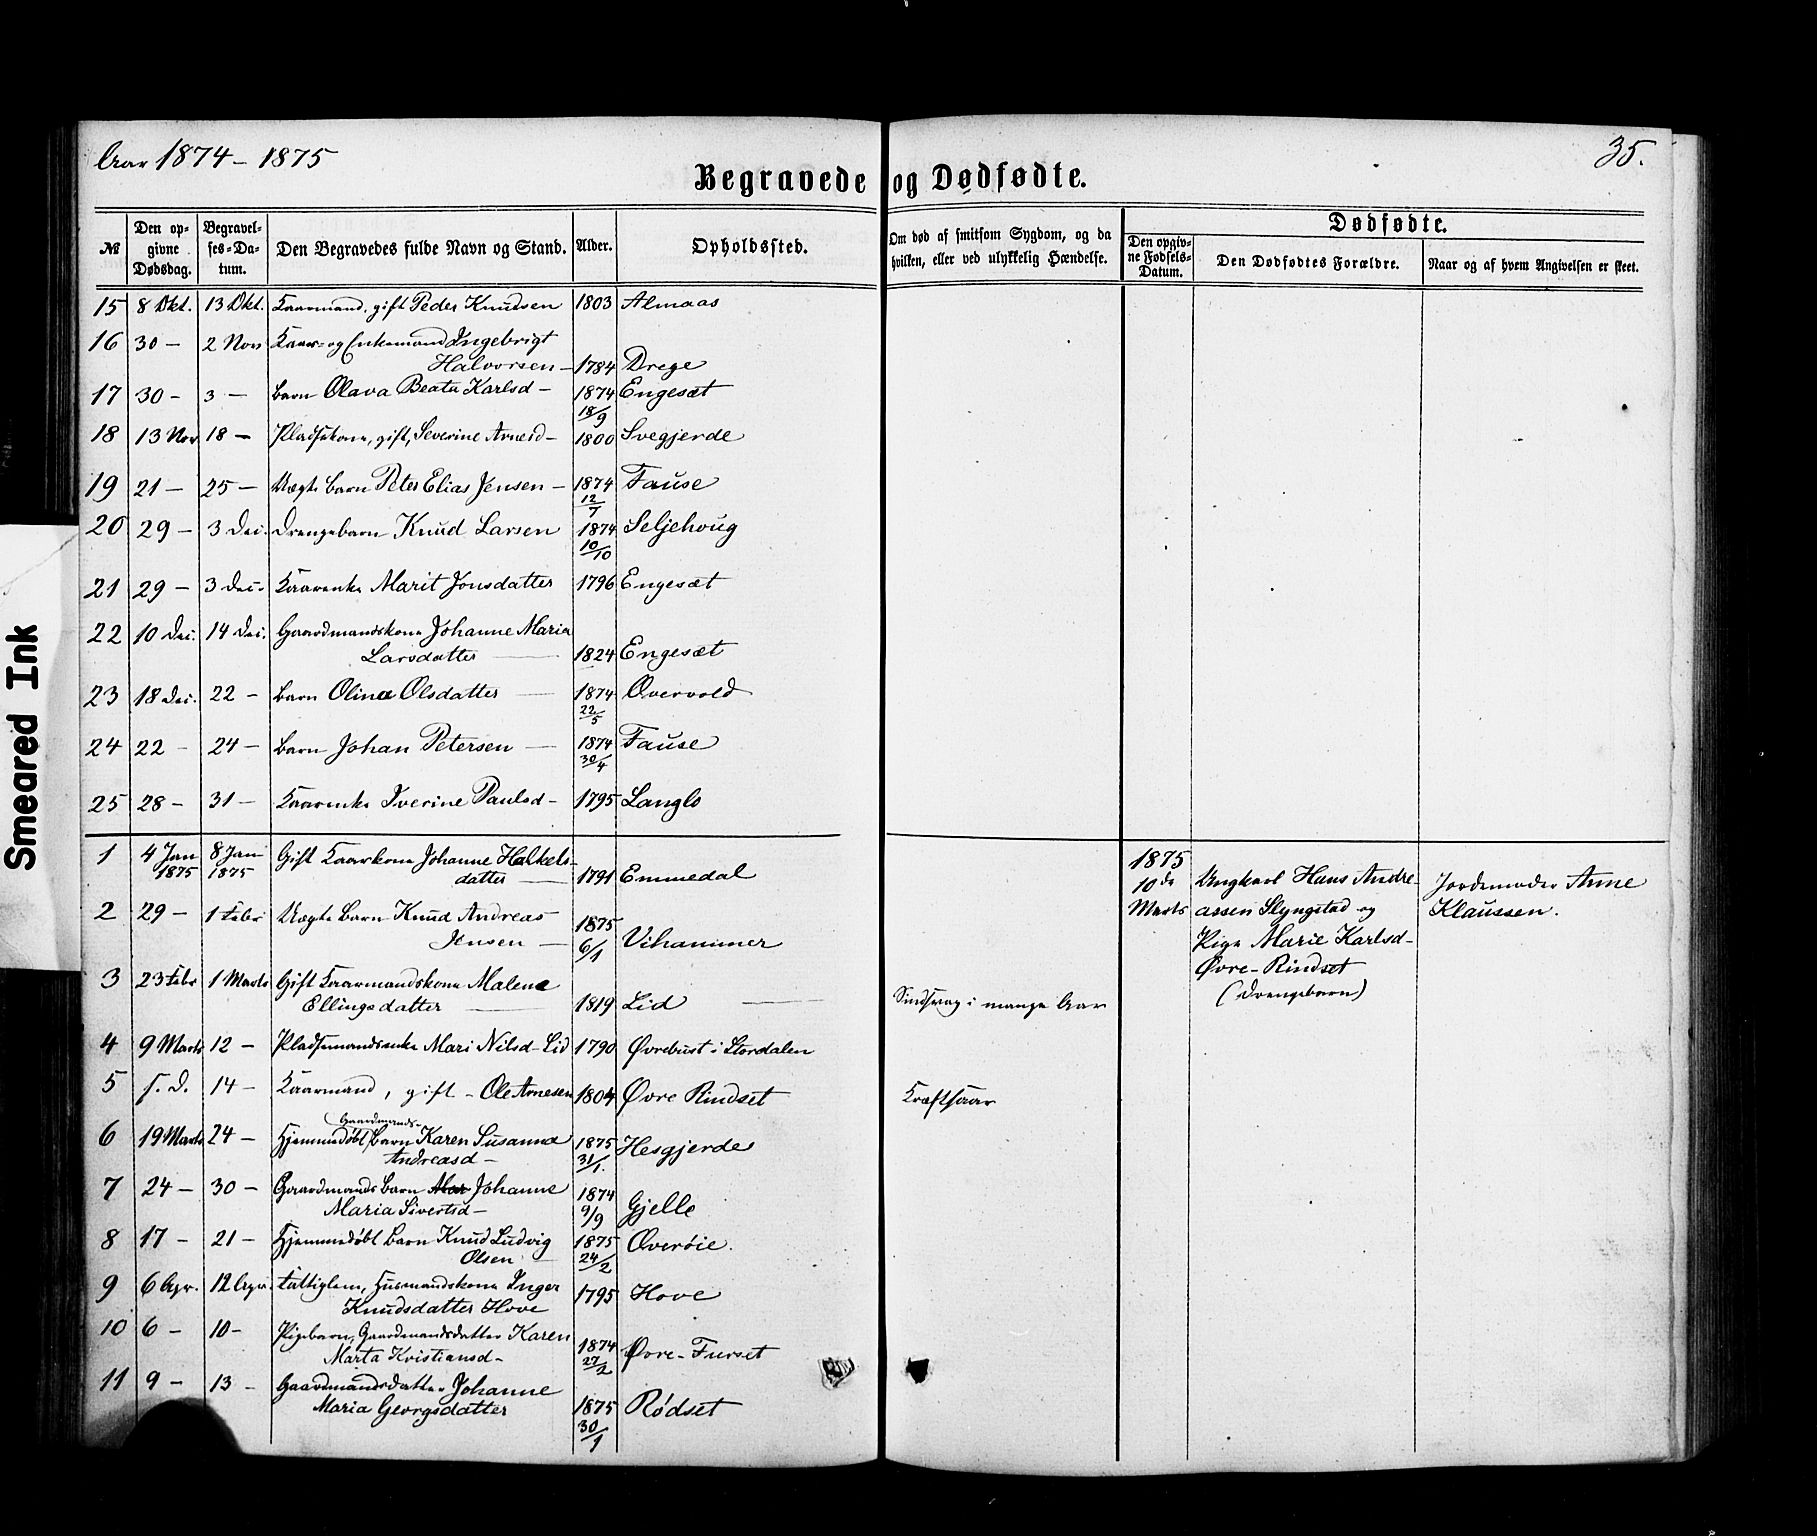 Aar 1874 - 1875
35.
Begravede og Dødfødte.
№
Den opgivne Dødsdag.
Begravelses-Datum.
Den Begravedes fulde Navn og Stand.
Alder.
Opholdssted.
Om død af smitsom Sygdom, og da hvilken, eller ved ulykkelig Hændelse.
Dødfødte.
Den opgivne Fødsels-Datum.
Den Dødfødtes Forældre.
Naar og af hvem Angivelsen er skeet.
15 8 Okt. 13 Okt. Kaarmand, gift Peder Knudsen 1803 Almaas
16 30 - 2 Nov Kaar- og Enkemand Ingebrigt
Halvorsen - 1784 Drege
17 30 - 3 - Barn Olava Beata Karlsd - 1874 18/9 Engesæt
18 13 Nov 18 - Pladsekone, gift, Severine Arnesd - 1800 Svegjerde
19 21 - 25 - Uægte Barn Peter Elias Jensen - 1874 12/7 Fause
20 29 - 3 Dec. Drengebarn Knud Larsen 1874 10/10 Seljehoug
21 29 - 3 Dec. Kaarenke Marit Jonsdatter 1796 Engesæt
22 10 Dec. 14 Dec. Gaardmandskone Johanne Maria
Larsdatter 1824 Engesæt
23 18 Dec. 22 - Barn Olina Olsdatter 1874 22/5 Overvold
24 22 - 24 - Barn Johan Petersen 1874 30/4 Fause
25 28 - 31 - Kaarenke Iverine Paulsd - 1795 Langlo
1 4 Jan 1875 8 Jan 1875 Gift Kaarkone Johanne Halkels-
datter 1791 Emmedal
2 29 - 1 Febr Uægte Barn Knud Andreas
Jensen - 1875 6/1 Vihammer
3 23 Febr 1 Marts Gift Kaarmandskone Malene
Ellingsdatter 1819 Lid Sindsvag i mange Aar
4 9 Marts 12 - Pladsemandsenke Mari Nilsd - Lid 1790 Øvrebust i Stordalen
5 s. D. 14 - Kaarmand, gift - Ole Arnesen 1804 Øvre Rindset Kræftsaar
6 19 Marts 24 - Hjemmedøbt Gaardmands- Barn Karen Susanna
Andreasd - 1875 31/1. Hesgjerde
7 24 - 30 - Gaardmands Barn Mar Johanne
Maria Sivertsd - 1874 9/9 Gjelle
8 17 - 21 - Hjemmedøbt Barn Knud Ludvig
Olsen 1875 24/2 Overøie.
9 6 Apr. 12 Apr. Fattiglem, Husmandskone Inger
Knudsdatter Hove 1795 Hove
10 6 - 10 - Pigebarn, Gaardmandsdatter Karen
Marta Kristiansd - 1874 27/2 Øvre-Furset
11 9 - 13 - Gaardmandsdatter Johanne
Maria Georgsdatter 1875 30/1 Rødset
1875
10de
Marts
Ungkarl Hans Andre-
assen Slyngstad og
Pige Marie Karlsd -
Øvre-Rindset
(Drengebarn)
Jordemoder Anne
Klaussen.
Smeared Ink